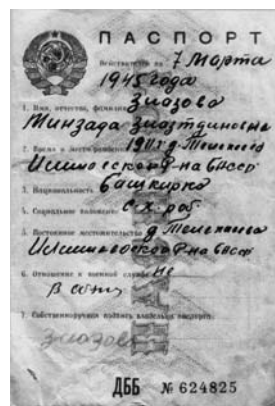 ПАСПОРТ
Действителен по 7 Марта
1945 года
1. Имя, отчество, фамилия Зиазова
Минзада Зиазтдиновна
2. Время и место рождения 1911 г. д.
Илишевского р-на БАССР
3. Национальность башкирка
4. Социальное положение с.х. раб
5. Постоянное местожительство д
Илишевского р-на БАССР
6. Отношение к военной службе не
в сост
7. Собственноручная подпись владельца паспорта:
зиазова
ДББ № 624825